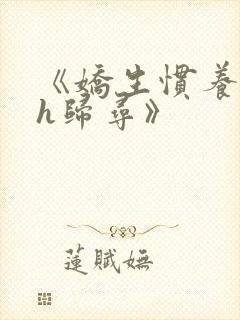 《嬌生慣養
h歸尋》
蓮賦嫵